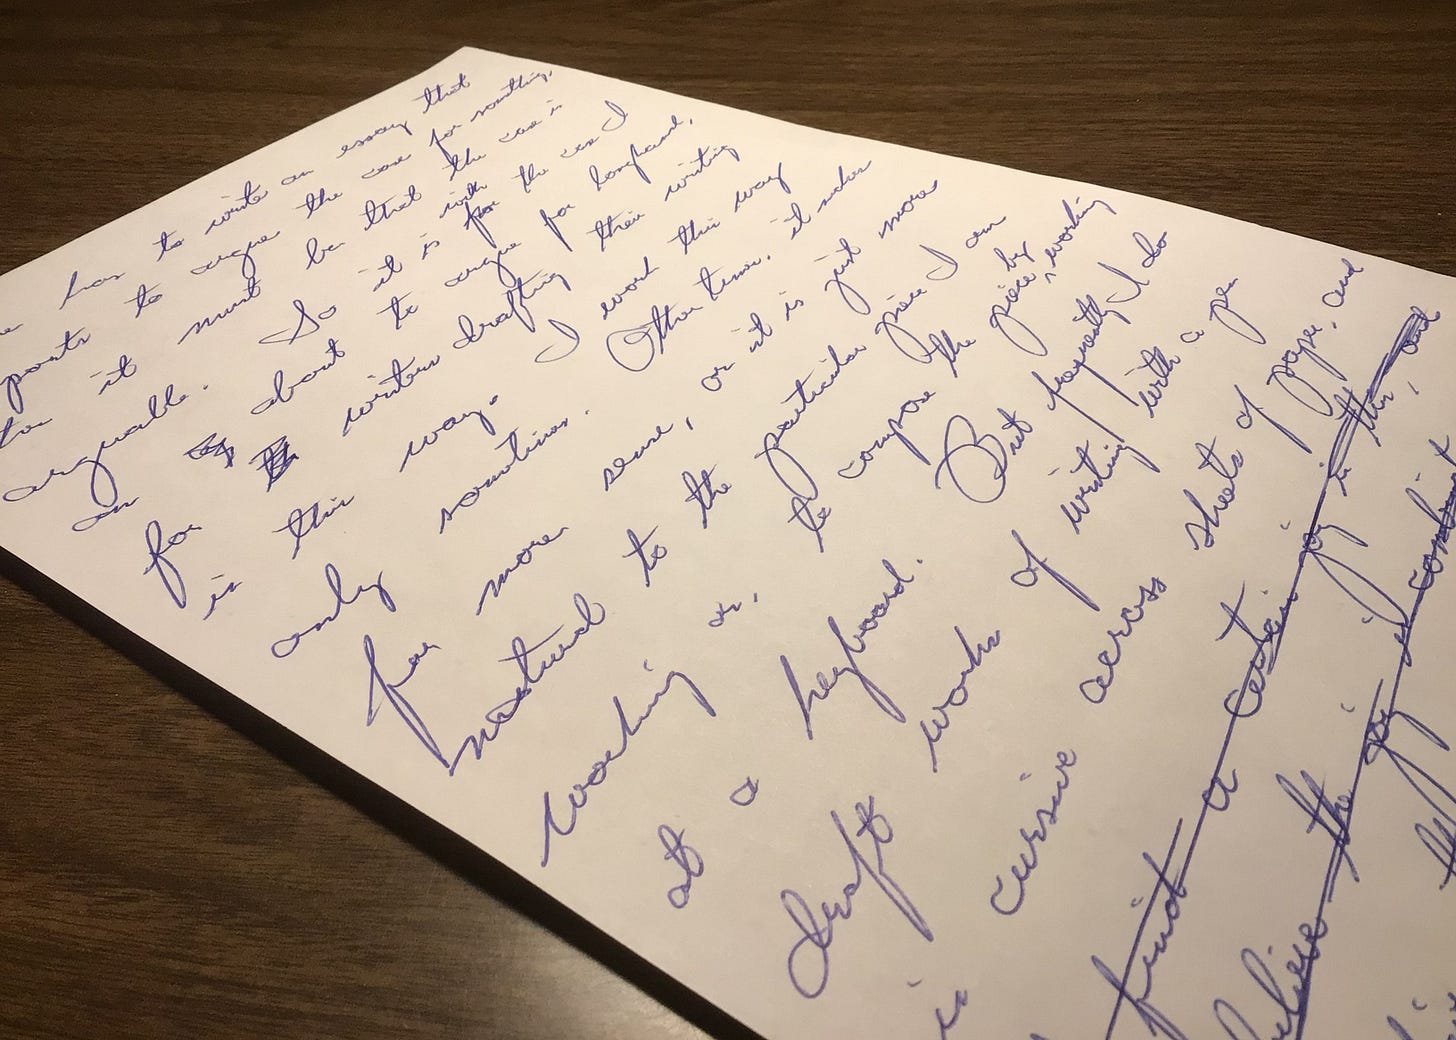 has to write an essay that
to argue the case for something,
it must be that the case is
arguable. So it is with for the case I
am about to argue for longhand,
for writers drafting their writing
in this way. I work this way
only sometimes. Other times, it makes
far more sense, or it is just more
natural to the particular piece I am
working on, to compose the piece by working
at a keyboard. But frequently I do
draft works of writing with a pen
in cursive across sheets of paper, and
find a certain joy in this, and
believe the joy is